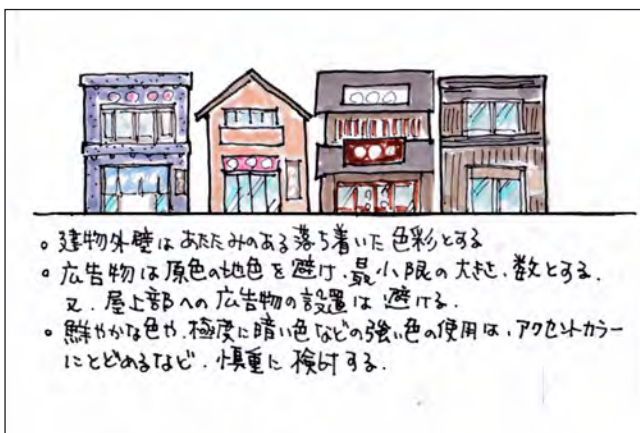 ・建物外壁はあたたみのある落ち着いた色彩とする
・広告物は原色の地色を避け、最小限の大きさ、数とする.
又、屋上部への広告物の設置は避ける.
・鮮やかな色や、極度に暗い色などの強い色の使用は、アクセントカラー
にとどめるなど、慎重に検討する.